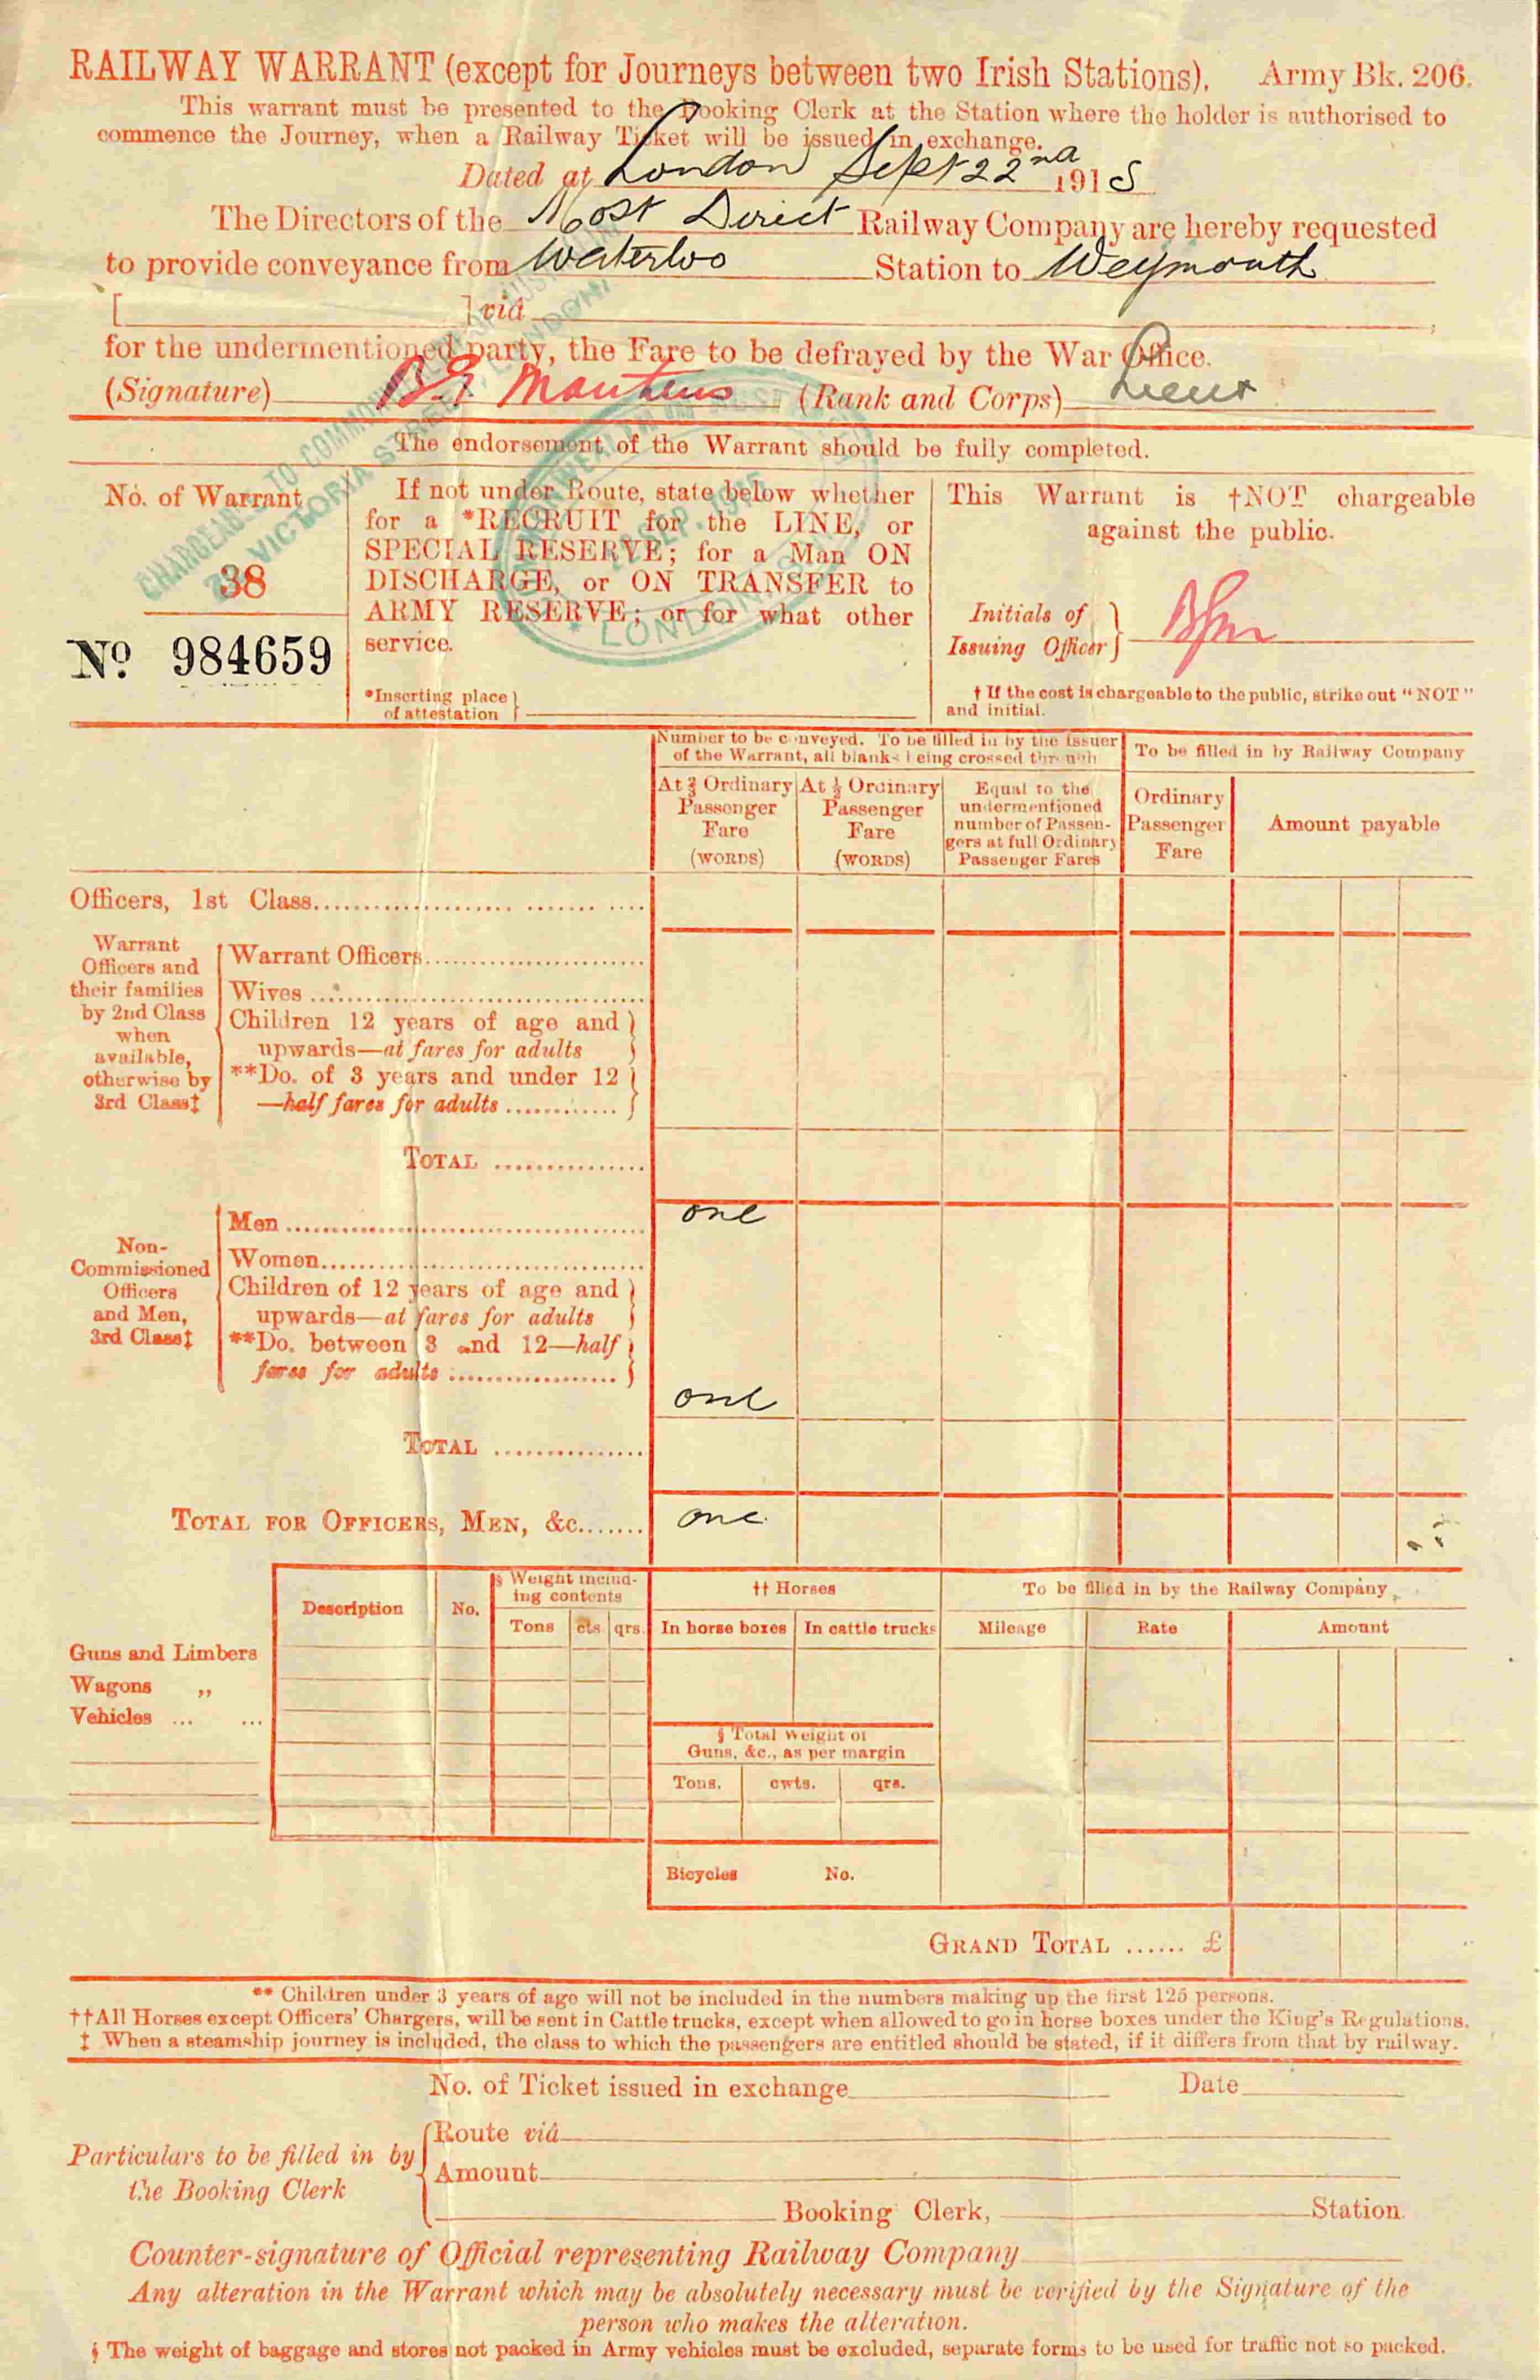 RAILWAY WARRANT (except for Journeys between two Irish Stations). Army Bk. 206.
This warrant must be presented to the Booking Clerk at the Station where the holder is authorised to
commence the Journey, when a Railway Ticket will be issued in exchange.
Dated at London Sept 22nd 1915
The Directors of the Most Direct Railway Company are hereby requested
to provide conveyance from Waterloo Station to Weymouth
[ ] viâ
for the undermentioned party, the Fare to be defrayed by the War Office.
(Signature) (Rank and Corps) Lieut
The endorsement of the Warrant should be fully completed.
CHARGEABLE TO COMMONWEALTH
VICTORIA STREET, LONDON
LONDON
No. of Warrant
38
Nº 984659
If not under Route, state below whether
for a *RECRUIT for the LINE, or
SPECIAL RESERVE; for a Man ON
DISCHARGE, or ON TRANSFER to
ARMY RESERVE; or for what other
service.
*Inserting place
of attestation
This Warrant is †NOT chargeable
against the public.
Initials of
Issuing Officer
† If the cost is chargeable to the public, strike out "NOT"
and initial.
Number to be conveyed. To be filled in by the issuer
of the Warrant, all blanks being crossed through
To be filled in by Railway Company
At ¾ Ordinary
Passenger
Fare
(WORDS)
At ½ Ordinary
Passenger
Fare
(WORDS)
Equal to the
undermentioned
number of Passen-
gers at full Ordinary
Passenger Fares
Ordinary
Passenger
Fare
Amount payable
Officers, 1st Class
Warrant
Officers and
their families
by 2nd Class
when
available,
otherwise by
3rd Class‡
Warrant Officers
Wives
Children 12 years of age and
upwards—at fares for adults
**Do. of 3 years and under 12
—half fares for adults
TOTAL
Non-
Commissioned
Officers
and Men,
3rd Class‡
Men one
Women
Children of 12 years of age and
upwards—at fares for adults
**Do. between 3 and 12—half
fares for adults
one
TOTAL
TOTAL FOR OFFICERS, MEN, &c. one
Description
No.
§ Weight includ-
ing contents
Tons cts qrs.
†† Horses
In horse boxes In cattle trucks
To be filled in by the Railway Company
Mileage Rate Amount
Guns and Limbers
Wagons ,,
Vehicles ... ...
§ Total Weight of
Guns, &c., as per margin
Tons. cwts. qrs.
Bicycles No.
GRAND TOTAL ...... £
** Children under 3 years of age will not be included in the numbers making up the first 125 persons.
††All Horses except Officers' Chargers, will be sent in Cattle trucks, except when allowed to go in horse boxes under the King's Regulations.
‡ When a steamship journey is included, the class to which the passengers are entitled should be stated, if it differs from that by railway.
No. of Ticket issued in exchange Date
Particulars to be filled in by
the Booking Clerk
Route viâ
Amount
Booking Clerk, Station.
Counter-signature of Official representing Railway Company
Any alteration in the Warrant which may be absolutely necessary must be verified by the Signature of the
person who makes the alteration.
§ The weight of baggage and stores not packed in Army vehicles must be excluded, separate forms to be used for traffic not so packed.